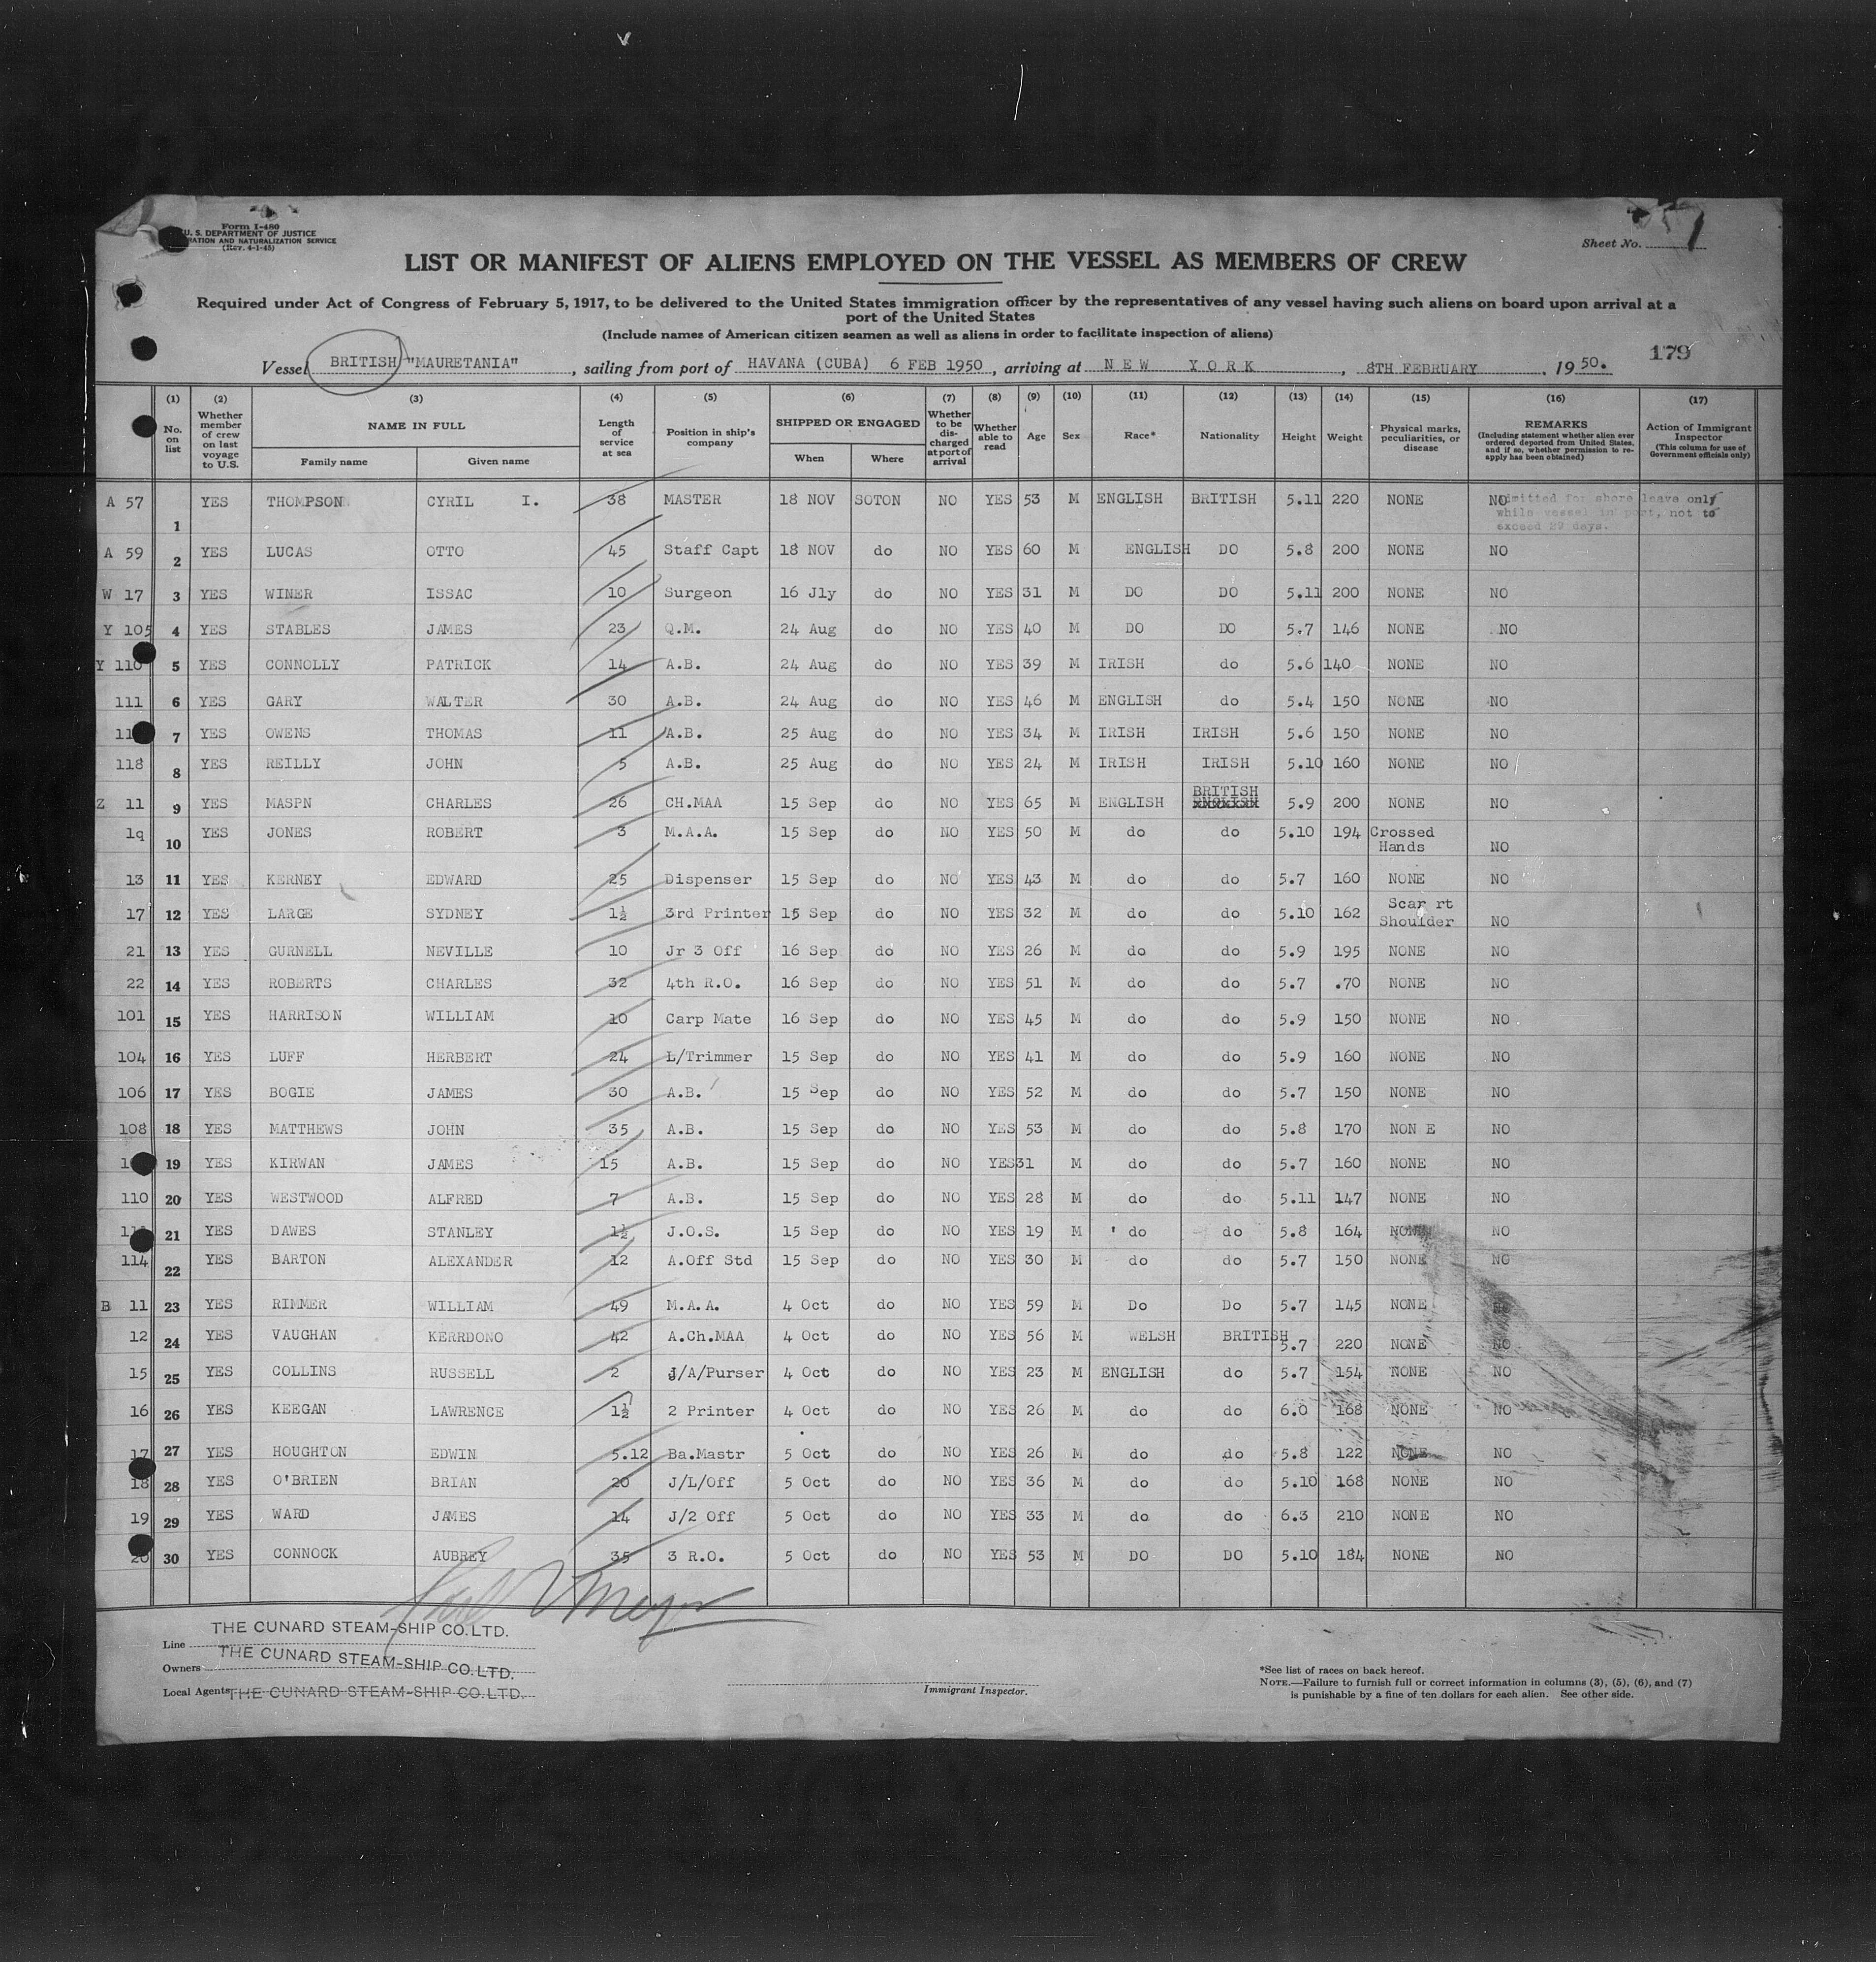 Form I-480
U. S. DEPARTMENT OF JUSTICE
RATION AND NATURALIZATION SERVICE
(Rev. 4-1-45)
Sheet No. 1
LIST OR MANIFEST OF ALIENS EMPLOYED ON THE VESSEL AS MEMBERS OF CREW
Required under Act of Congress of February 5, 1917, to be delivered to the United States immigration officer by the representatives of any vessel having such aliens on board upon arrival at a
port of the United States
(Include names of American citizen seamen as well as aliens in order to facilitate inspection of aliens)
179
Vessel BRITISH "MAURETANIA", sailing from port of HAVANA (CUBA) 6 FEB 1950, arriving at NEW YORK, 8TH FEBRUARY, 1950.
(1) No. on list (2) Whether member of crew on last voyage to U.S. (3) NAME IN FULL Family name Given name (4) Length of service at sea (5) Position in ship's company (6) SHIPPED OR ENGAGED When Where (7) Whether to be discharged at port of arrival (8) Whether able to read (9) Age (10) Sex (11) Race* (12) Nationality (13) Height (14) Weight (15) Physical marks, peculiarities, or disease (16) REMARKS (Including statement whether alien ever ordered deported from United States, and if so, whether permission to reapply has been obtained) (17) Action of Immigrant Inspector (This column for use of Government officials only)
A 57 1 YES THOMPSON CYRIL I. 38 MASTER 18 NOV SOTON NO YES 53 M ENGLISH BRITISH 5.11 220 NONE NO
Admitted for shore leave only
while vessel in port, not to
exceed 29 days.
A 59 2 YES LUCAS OTTO 45 Staff Capt 18 NOV do NO YES 60 M ENGLISH DO 5.8 200 NONE NO
W 17 3 YES WINER ISSAC 10 Surgeon 16 Jly do NO YES 31 M DO DO 5.11 200 NONE NO
Y 105 4 YES STABLES JAMES 23 Q.M. 24 Aug do NO YES 40 M DO DO 5.7 146 NONE NO
Y 110 5 YES CONNOLLY PATRICK 14 A.B. 24 Aug do NO YES 39 M IRISH do 5.6 140 NONE NO
111 6 YES GARY WALTER 30 A.B. 24 Aug do NO YES 46 M ENGLISH do 5.4 150 NONE NO
7 YES OWENS THOMAS 11 A.B. 25 Aug do NO YES 34 M IRISH IRISH 5.6 150 NONE NO
118 8 YES REILLY JOHN 5 A.B. 25 Aug do NO YES 24 M IRISH IRISH 5.10 160 NONE NO
Z 11 9 YES MASPN CHARLES 26 CH.MAA 15 Sep do NO YES 65 M ENGLISH BRITISH 5.9 200 NONE NO
1q 10 YES JONES ROBERT 3 M.A.A. 15 Sep do NO YES 50 M do do 5.10 194 Crossed Hands NO
13 11 YES KERNEY EDWARD 25 Dispenser 15 Sep do NO YES 43 M do do 5.7 160 NONE NO
17 12 YES LARGE SYDNEY 1½ 3rd Printer 15 Sep do NO YES 32 M do do 5.10 162 Scar rt Shoulder NO
21 13 YES GURNELL NEVILLE 10 Jr 3 Off 16 Sep do NO YES 26 M do do 5.9 195 NONE NO
22 14 YES ROBERTS CHARLES 32 4th R.O. 16 Sep do NO YES 51 M do do 5.7 .70 NONE NO
101 15 YES HARRISON WILLIAM 10 Carp Mate 16 Sep do NO YES 45 M do do 5.9 150 NONE NO
104 16 YES LUFF HERBERT 24 L/Trimmer 15 Sep do NO YES 41 M do do 5.9 160 NONE NO
106 17 YES BOGIE JAMES 30 A.B. 15 Sep do NO YES 52 M do do 5.7 150 NONE NO
108 18 YES MATTHEWS JOHN 35 A.B. 15 Sep do NO YES 53 M do do 5.8 170 NON E NO
19 YES KIRWAN JAMES 15 A.B. 15 Sep do NO YES 31 M do do 5.7 160 NONE NO
110 20 YES WESTWOOD ALFRED 7 A.B. 15 Sep do NO YES 28 M do do 5.11 147 NONE NO
21 YES DAWES STANLEY 1½ J.O.S. 15 Sep do NO YES 19 M do do 5.8 164 NONE NO
114 22 YES BARTON ALEXANDER 12 A.Off Std 15 Sep do NO YES 30 M do do 5.7 150 NONE NO
B 11 23 YES RIMMER WILLIAM 49 M.A.A. 4 Oct do NO YES 59 M Do Do 5.7 145 NONE NO
12 24 YES VAUGHAN KERRDONO 42 A.Ch.MAA 4 Oct do NO YES 56 M WELSH BRITISH 5.7 220 NONE NO
15 25 YES COLLINS RUSSELL 2 J/A/Purser 4 Oct do NO YES 23 M ENGLISH do 5.7 154 NONE NO
16 26 YES KEEGAN LAWRENCE 1½ 2 Printer 4 Oct do NO YES 26 M do do 6.0 168 NONE NO
17 27 YES HOUGHTON EDWIN 5.12 Ba.Mastr 5 Oct do NO YES 26 M do do 5.8 122 NONE NO
18 28 YES O'BRIEN BRIAN 20 J/L/Off 5 Oct do NO YES 36 M do do 5.10 168 NONE NO
19 29 YES WARD JAMES 14 J/2 Off 5 Oct do NO YES 33 M do do 6.3 210 NONE NO
20 30 YES CONNOCK AUBREY 35 3 R.O. 5 Oct do NO YES 53 M DO DO 5.10 184 NONE NO
Line THE CUNARD STEAM-SHIP CO. LTD.
Owners THE CUNARD STEAM-SHIP CO. LTD.
Local Agents THE CUNARD STEAM-SHIP CO. LTD.
Immigrant Inspector.
*See list of races on back hereof.
NOTE.—Failure to furnish full or correct information in columns (3), (5), (6), and (7)
is punishable by a fine of ten dollars for each alien. See other side.